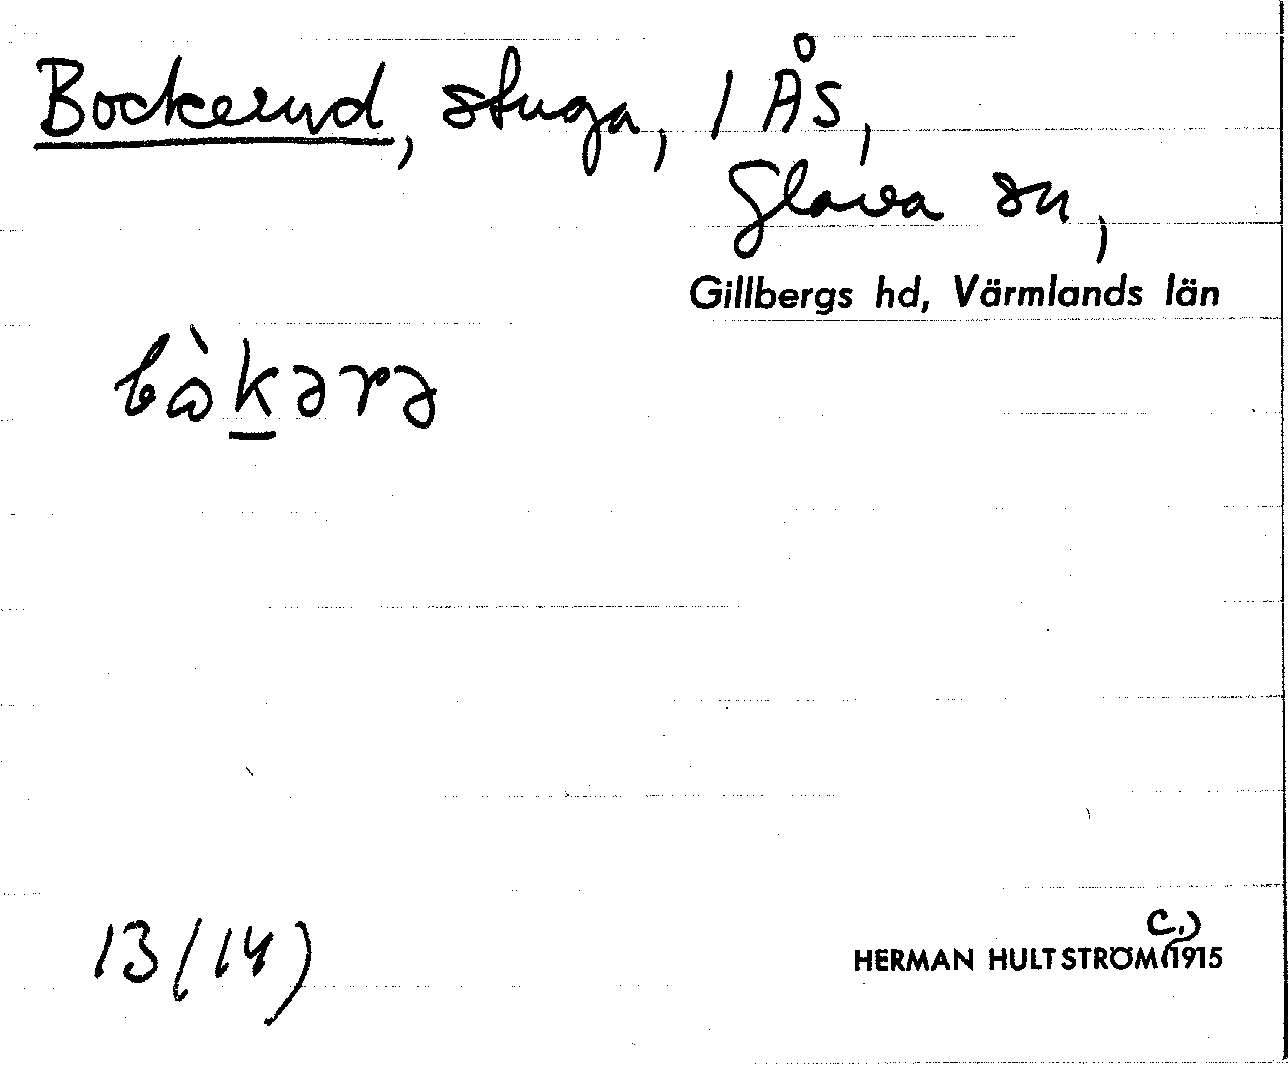 Bockerud, stuga, 1 ÅS,
Glava sn,
Gillbergs hd, Värmlands län
bὼkərə
13 (14)
HERMAN HULTSTRÖM (c.) 1915